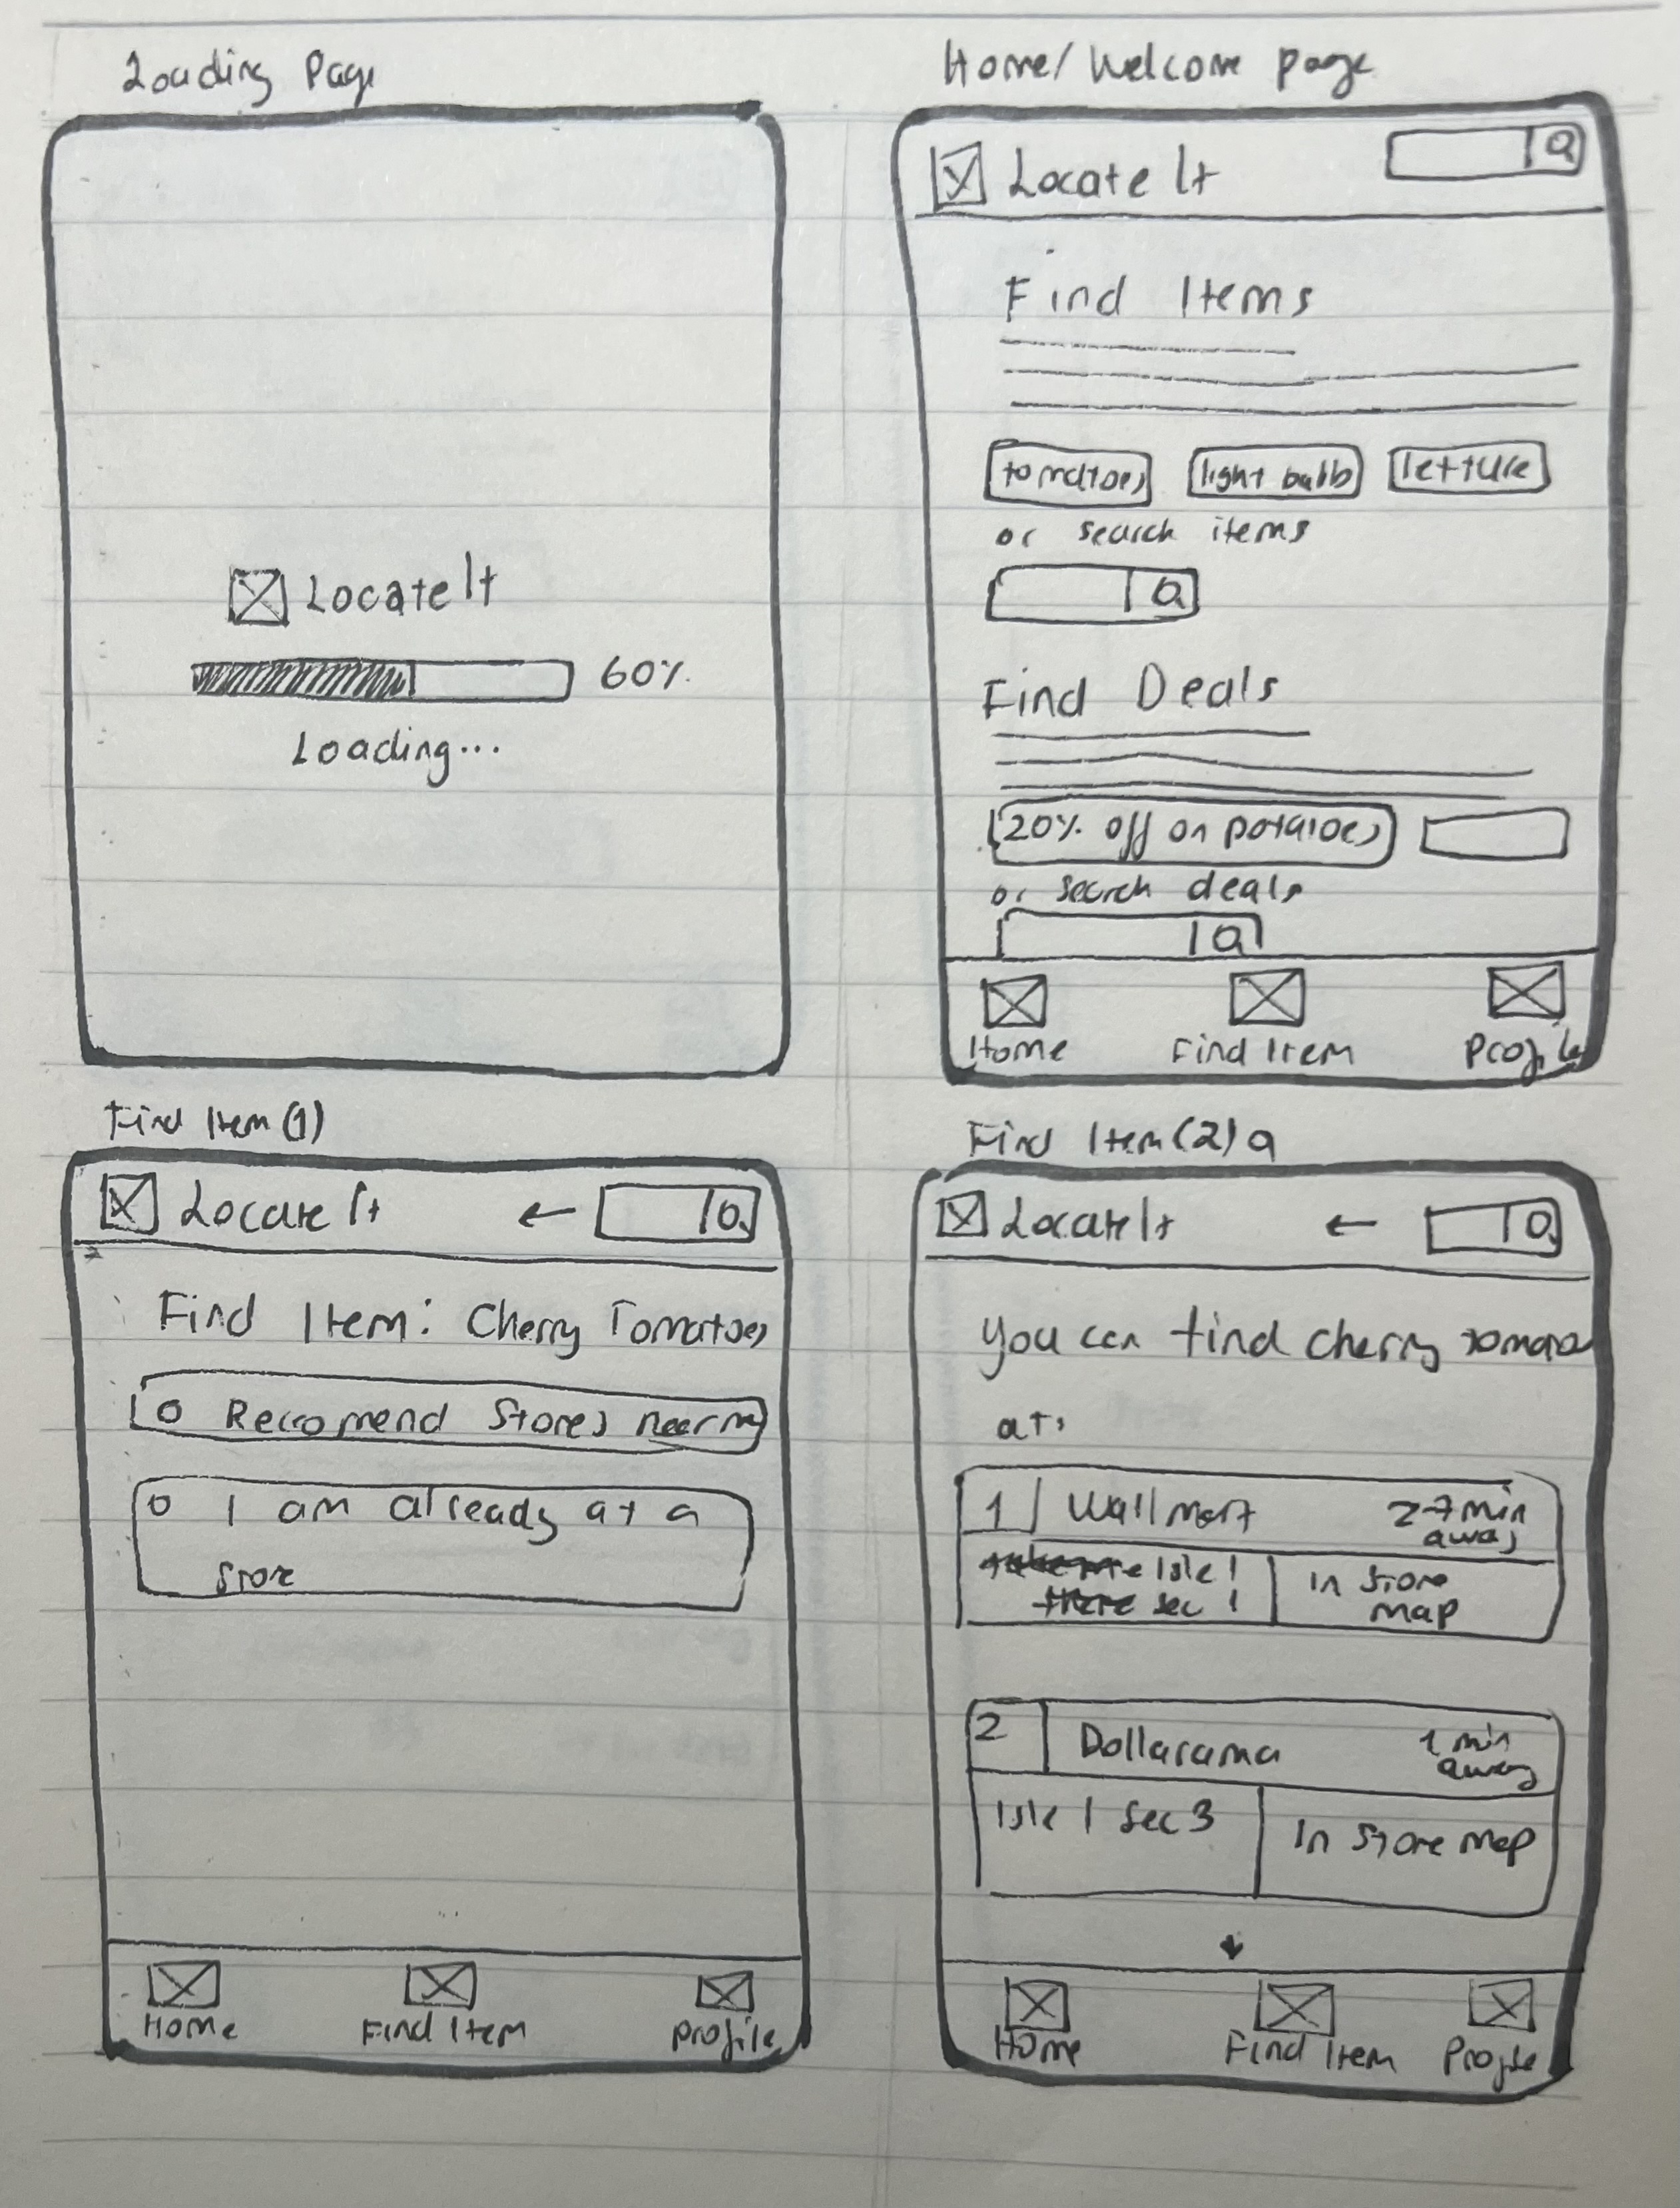 Loading Page
LocateIt
60%
Loading...
Home/Welcome page
Locate It
Find Items
tomatoes
light bulb
lettuce
or search items
Find Deals
20% off on potatoes
or search deals
Home
Find Item
Profile
Find Item (1)
Locate It
←
Find Item: Cherry Tomatoes
O Reccomend Stores near me
O I am already at a
store
Home
Find Item
Profile
Find Item (2) a
LocateIt
←
You can find cherry
at:
1 Wallmart
2-7min
away
Isle 1
sec 1
In Store
map
2
Dollarama
1 min
away
Isle 1 sec 3
In Store map
Home
Find Item
Profile